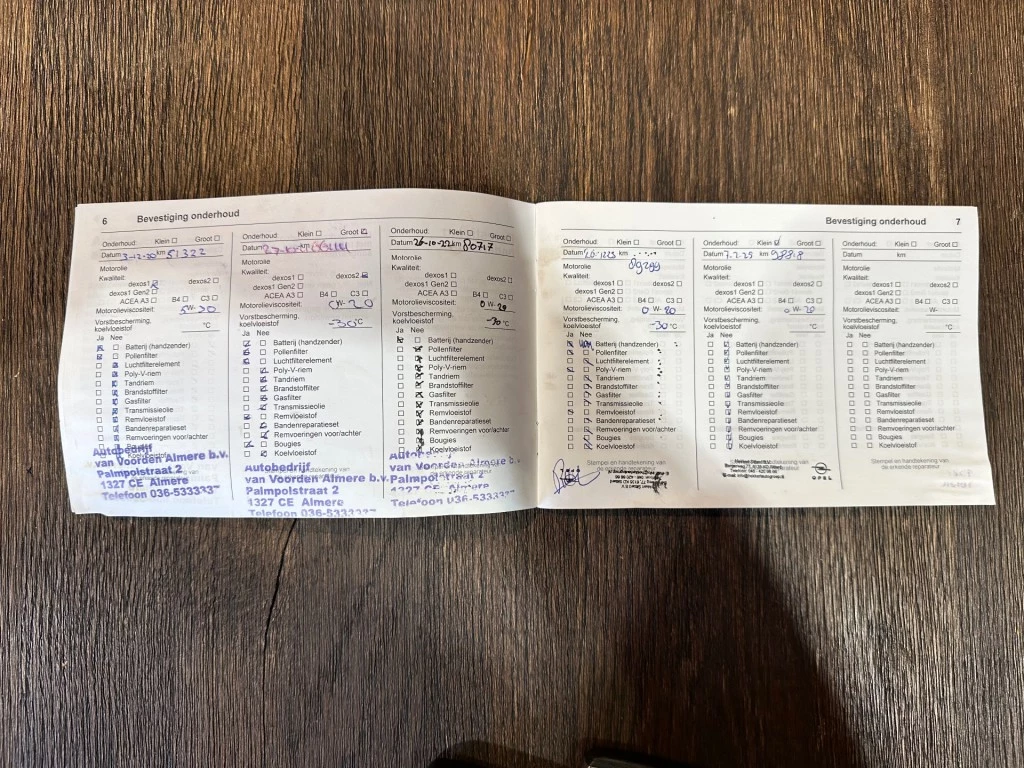 6 Bevestiging onderhoud
Onderhoud: Klein Groot
Datum 3-12-20 km 51322
Motorolie
Kwaliteit:
dexos1 dexos2
dexos1 Gen2
ACEA A3 B4 C3
Motorolieviscositeit: 5W-30
Vorstbescherming,
koelvloeistof °C
Ja Nee
Batterij (handzender)
Pollenfilter
Luchtfilterelement
Poly-V-riem
Tandriem
Brandstoffilter
Gasfilter
Transmissieolie
Remvloeistof
Bandenreparatieset
Remvoeringen voor/achter
Autobedrijf
van Voorden Almere b.v.
Palmpolstraat 2
1327 CE Almere
Telefoon 036-533333
Onderhoud: Klein Groot
Datum km
Motorolie
Kwaliteit:
dexos1 dexos2
dexos1 Gen2
ACEA A3 B4 C3
Motorolieviscositeit: 0W-20
Vorstbescherming,
koelvloeistof -30°C
Ja Nee
Batterij (handzender)
Pollenfilter
Luchtfilterelement
Poly-V-riem
Tandriem
Brandstoffilter
Gasfilter
Transmissieolie
Remvloeistof
Bandenreparatieset
Remvoeringen voor/achter
Bougies
Koelvloeistof
Autobedrijf
van Voorden Almere b.v.
Palmpolstraat 2
1327 CE Almere
Telefoon 036-5333
Onderhoud: Klein Groot
Datum 26-10-22 km 80717
Motorolie
Kwaliteit:
dexos1 dexos2
dexos1 Gen2
ACEA A3 B4 C3
Motorolieviscositeit: 0W-20
Vorstbescherming,
koelvloeistof -30°C
Ja Nee
Batterij (handzender)
Pollenfilter
Luchtfilterelement
Poly-V-riem
Tandriem
Brandstoffilter
Gasfilter
Transmissieolie
Remvloeistof
Bandenreparatieset
Remvoeringen voor/achter
Bougies
Koelvloeistof
van Voorden Almere b.v.
Bevestiging onderhoud 7
Onderhoud: Klein Groot
Datum km
Motorolie
Kwaliteit:
dexos1 dexos2
dexos1 Gen2
ACEA A3 B4 C3
Motorolieviscositeit: 0W-20
Vorstbescherming,
koelvloeistof -30°C
Ja Nee
Batterij (handzender)
Pollenfilter
Luchtfilterelement
Poly-V-riem
Tandriem
Brandstoffilter
Gasfilter
Transmissieolie
Remvloeistof
Bandenreparatieset
Remvoeringen voor/achter
Bougies
Koelvloeistof
Stempel en handtekening van
Onderhoud: Klein Groot
Datum 7.2.25 km
Motorolie
Kwaliteit:
dexos1 dexos2
dexos1 Gen2
ACEA A3 B4 C3
Motorolieviscositeit: 0W-20
Vorstbescherming,
koelvloeistof °C
Ja Nee
Batterij (handzender)
Pollenfilter
Luchtfilterelement
Poly-V-riem
Tandriem
Brandstoffilter
Gasfilter
Transmissieolie
Remvloeistof
Bandenreparatieset
Remvoeringen voor/achter
Bougies
Koelvloeistof
OPEL
Onderhoud: Klein Groot
Datum km
Motorolie
Kwaliteit:
dexos1 dexos2
dexos1 Gen2
ACEA A3 B4 C3
Motorolieviscositeit: W-
Vorstbescherming,
koelvloeistof °C
Ja Nee
Batterij (handzender)
Pollenfilter
Luchtfilterelement
Poly-V-riem
Tandriem
Brandstoffilter
Gasfilter
Transmissieolie
Remvloeistof
Bandenreparatieset
Remvoeringen voor/achter
Bougies
Koelvloeistof
Stempel en handtekening van
de erkende reparateur